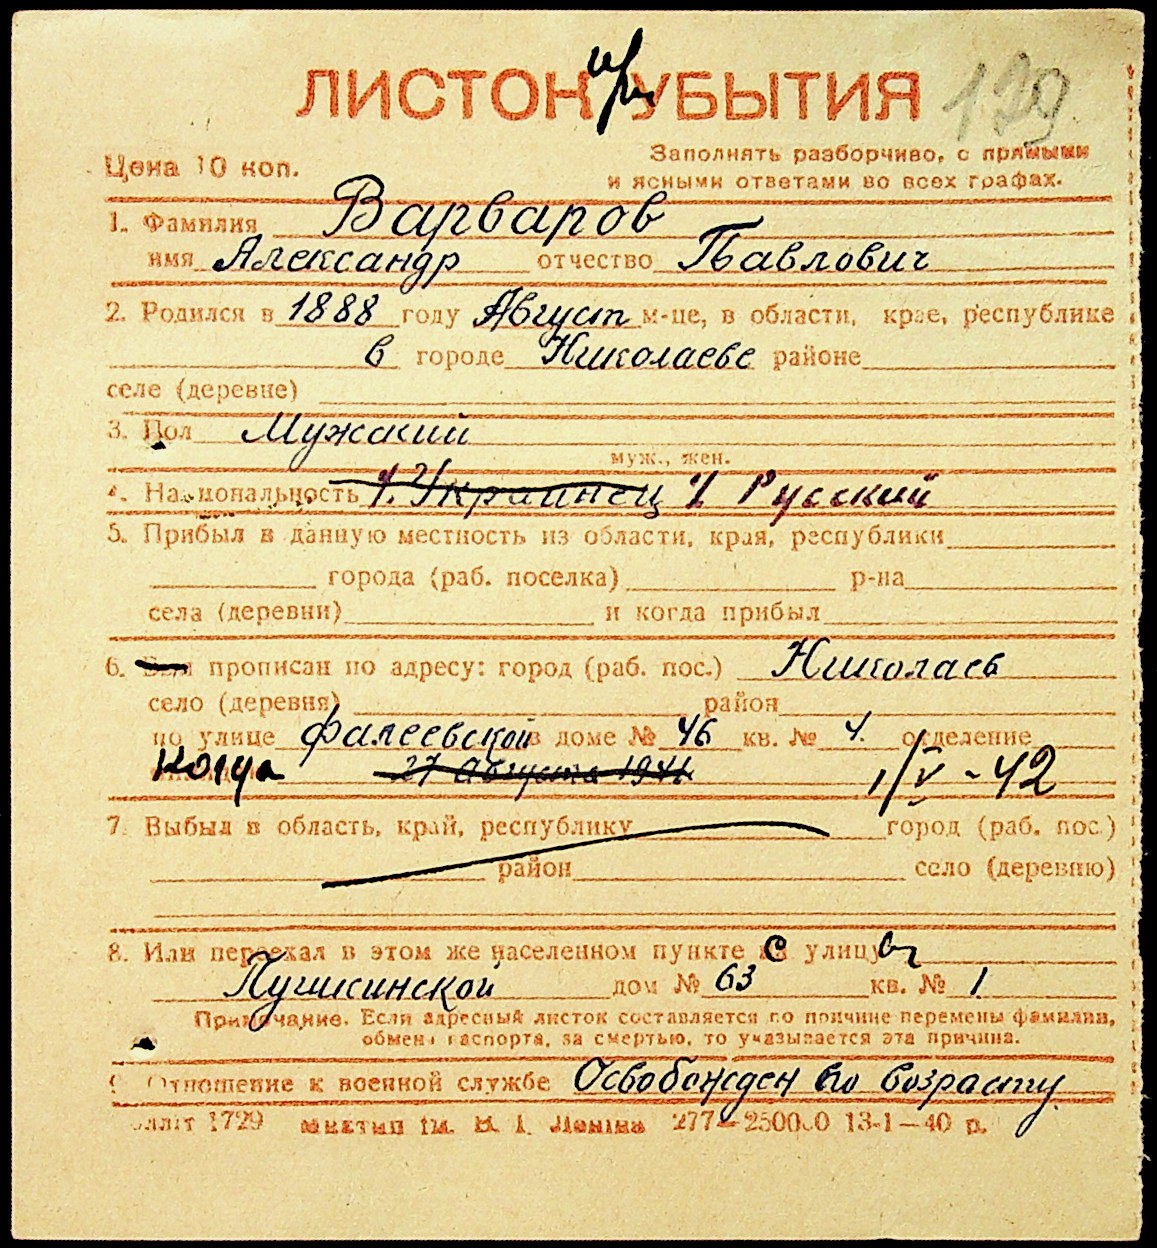 ЛИСТОК УБЫТИЯ 129
Цена 10 коп.
Заполнять разборчиво, с прямыми
и ясными ответами во всех графах.
1. Фамилия Варваров
имя Александр отчество Павлович
2. Родился в 1888 году Август м-це, в области, крае, республике
в городе Николаеве районе
селе (деревне)
3. Пол Мужский
муж., жен.
4. Национальность Украинец Русский
5. Прибыл в данную местность из области, края, республики
города (раб. поселка) р-на
села (деревни) и когда прибыл
6. прописан по адресу: город (раб. пос.) Николаев
село (деревня) район
по улице Фалеевской в доме № 46 кв. № 4. отделение
Когда 27 Августа 1941 1/V-42
7. Выбыл в область, край, республику город (раб. пос.)
район село (деревню)
8. Или переехал в этом же населенном пункте с улицы
Пушкинской дом № 63 кв. № 1
Примечание. Если адресный листок составляется по причине перемены фамилии,
обмена паспорта, за смертью, то указывается эта причина.
9. Отношение к военной службе Освобожден по возрасту.
1729 им. В. І. Леніна 277—250000 13-1—40 р.